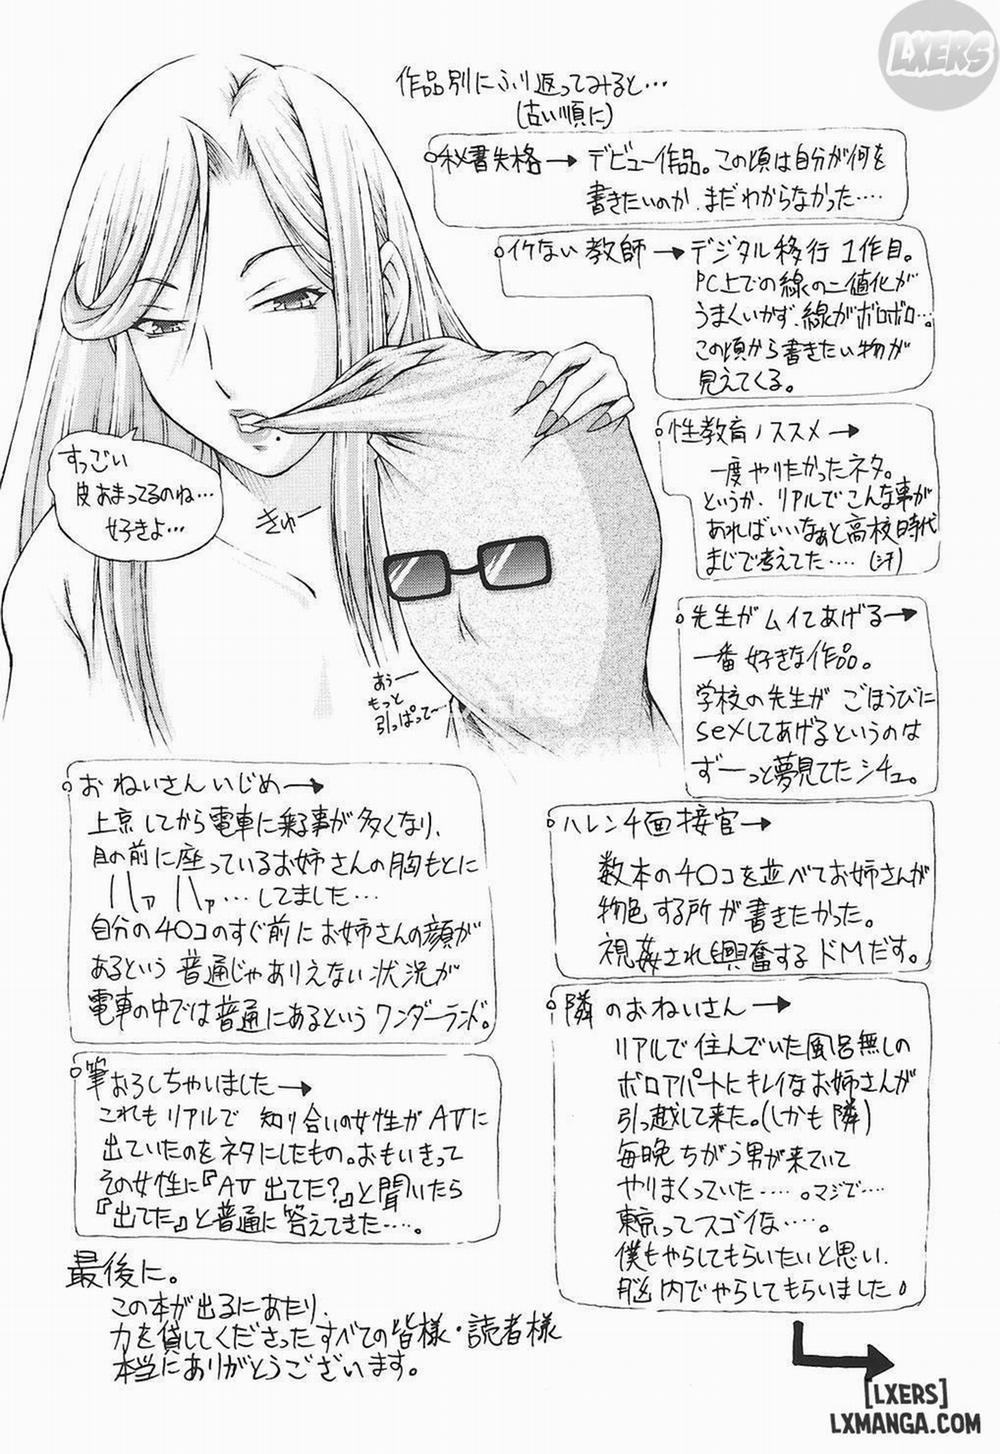 作品別にふり返ってみると…
(古い順に)
秘書失格→デビュー作品。この頃は自分が何を
書きたいのか、まだわからなかった‥‥
イケない教師→デジタル移行1作目。
PC上での線の二値化が
うまくいかず、線がボロボロ…。
この頃から書きたい物が
見えてくる。
性教育ノススメ→
一度やりたかったネタ。
というか、リアルでこんな事が
あればいいなぁと高校時代
まじで考えてた‥‥(汗)
先生がムイてあげる→
一番好きな作品。
学校の先生がごほうびに
sexしてあげるというのは
ずーっと夢見てたシチュ。
ハレンチ面接官→
数本のチ○コを並べてお姉さんが
物色する所が書きたかった。
視姦され興奮するドMだす。
隣のおねいさん→
リアルで住んでいた風呂無しの
ボロアパートにキレイなお姉さんが
引っ越して来た。(しかも隣)
毎晩ちがう男が来ていて
やりまくっていた‥‥。マジで‥‥
東京ってスゴイな‥‥。
僕もやらしてもらいたいと思い、
脳内でやらしてもらいました。
すっごい
皮あまってるのね…
好きよ…
きゅー
あぅー
もっと
引っぱって〜
おねいさんいじめ→
上京してから電車に乗る事が多くなり、
目の前に座っているお姉さんの胸もとに
ハァハァ…してました…
自分のチ○コのすぐ前にお姉さんの顔が
あるという普通じゃありえない状況が
電車の中では普通にあるというワンダーランド。
筆おろしちゃいました→
これもリアルで知り合いの女性がAVに
出ていたのをネタにしたもの。おもいきって
その女性に『AV出てた?』と聞いたら
『出てた』と普通に答えてきた‥‥。
最後に。
この本が出るにあたり、
力を貸してくださったすべての皆様・読者様
本当にありがとうございます。
LXERS
[LXERS]
LXMANGA.COM